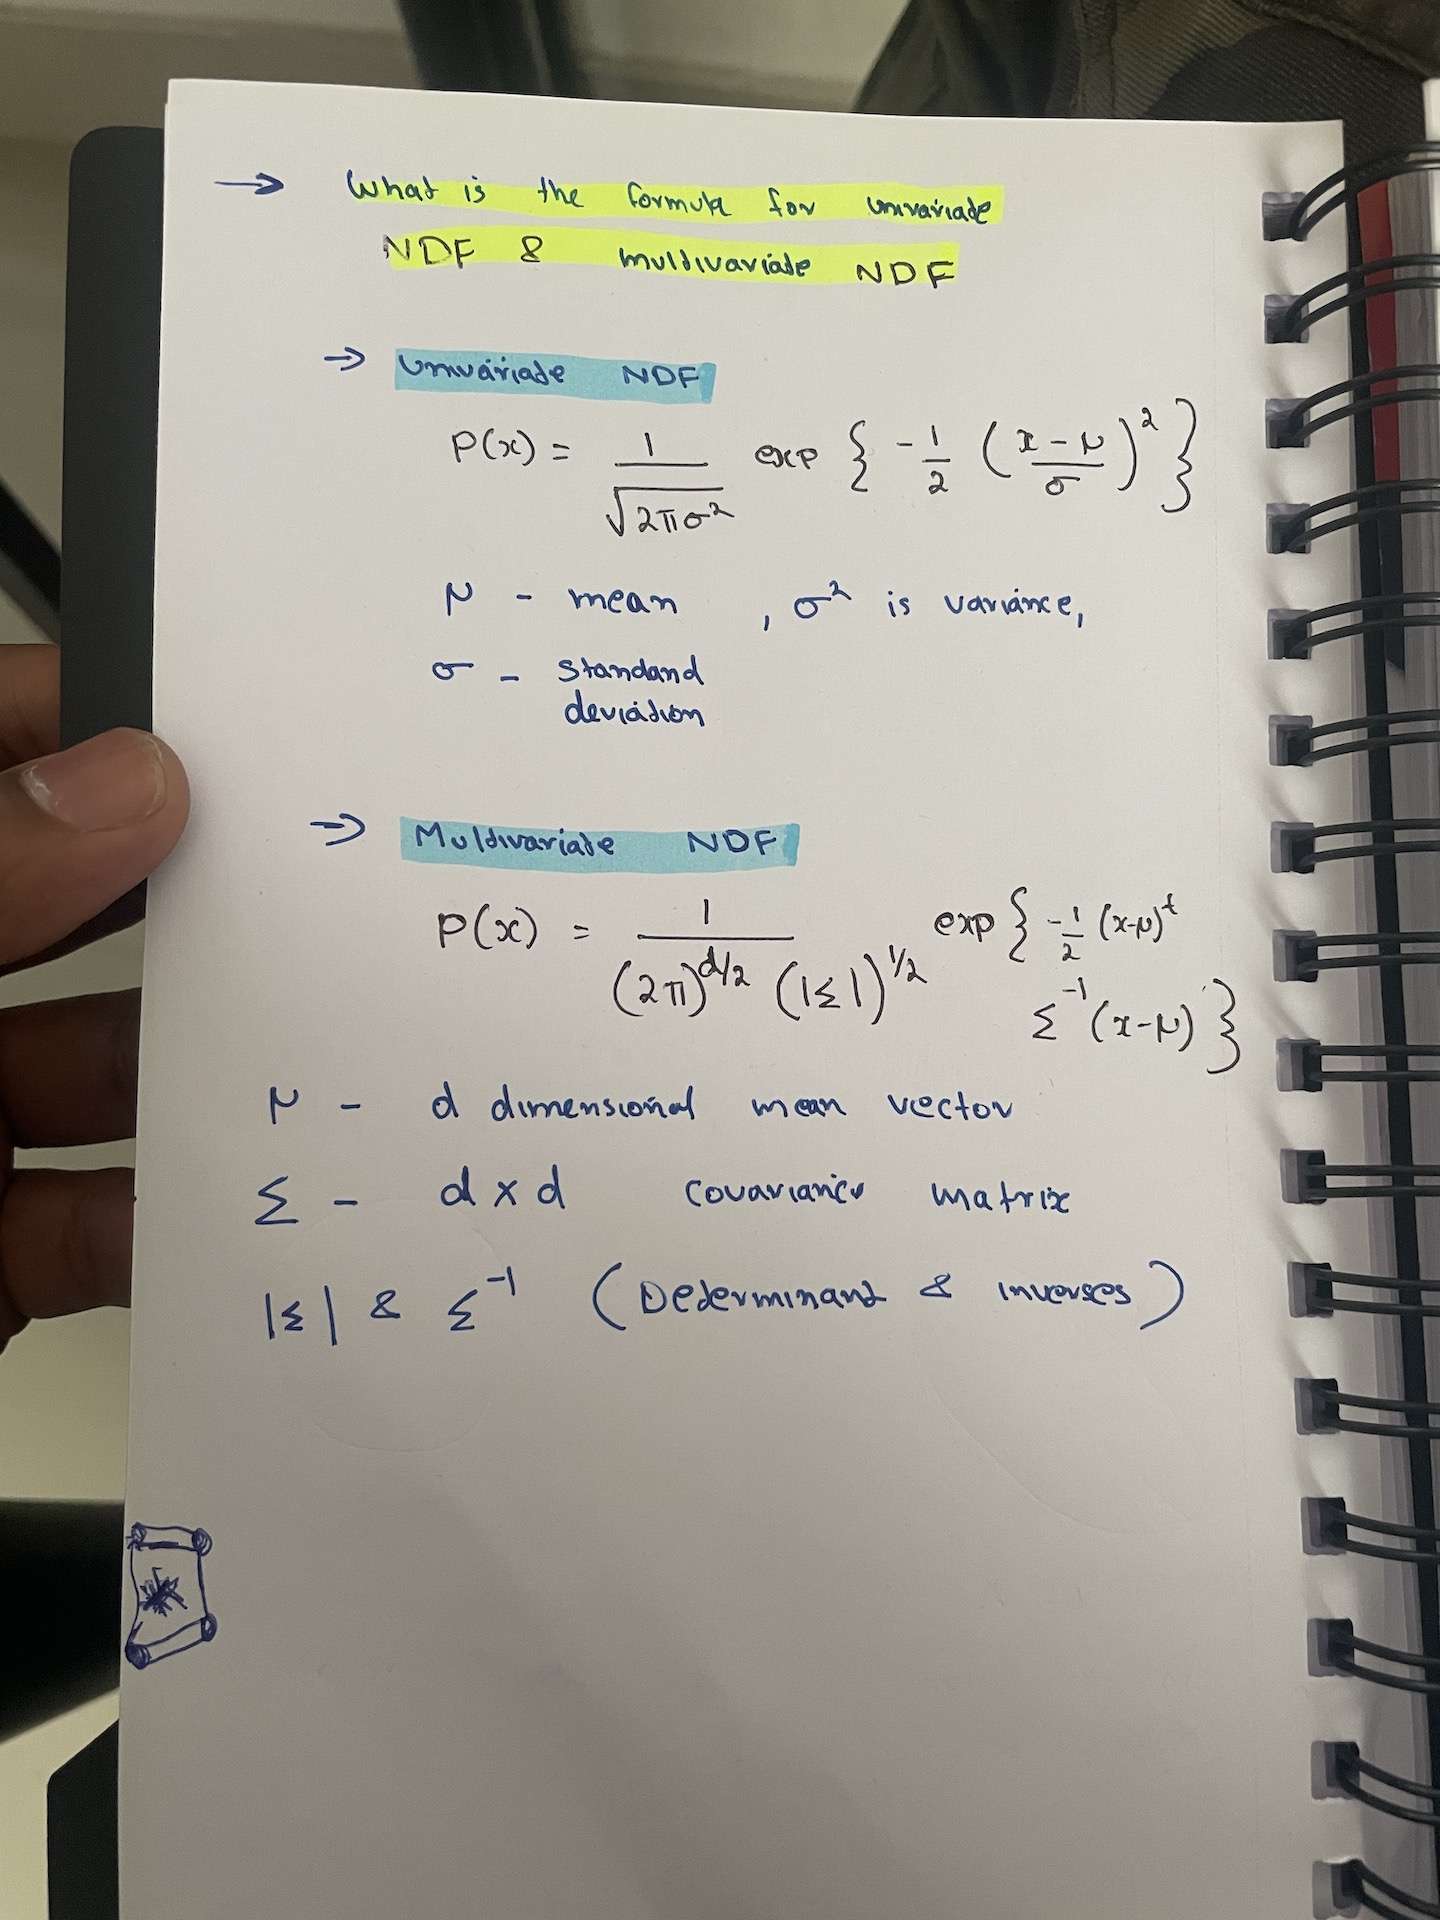 → What is the formula for univariate
NDF & multivariate NDF
→ Univariate NDF
P(x) = 1/√(2πσ²) exp { -1/2 ((x-μ)/σ)² }
μ - mean , σ² is variance,
σ - standard
deviation
→ Multivariate NDF
P(x) = 1/((2π)^(d/2) (|Σ|)^(1/2)) exp { -1/2 (x-μ)^t
Σ^-1 (x-μ) }
μ - d dimensional mean vector
Σ - d x d covariance matrix
|Σ| & Σ^-1 (Determinant & inverses)